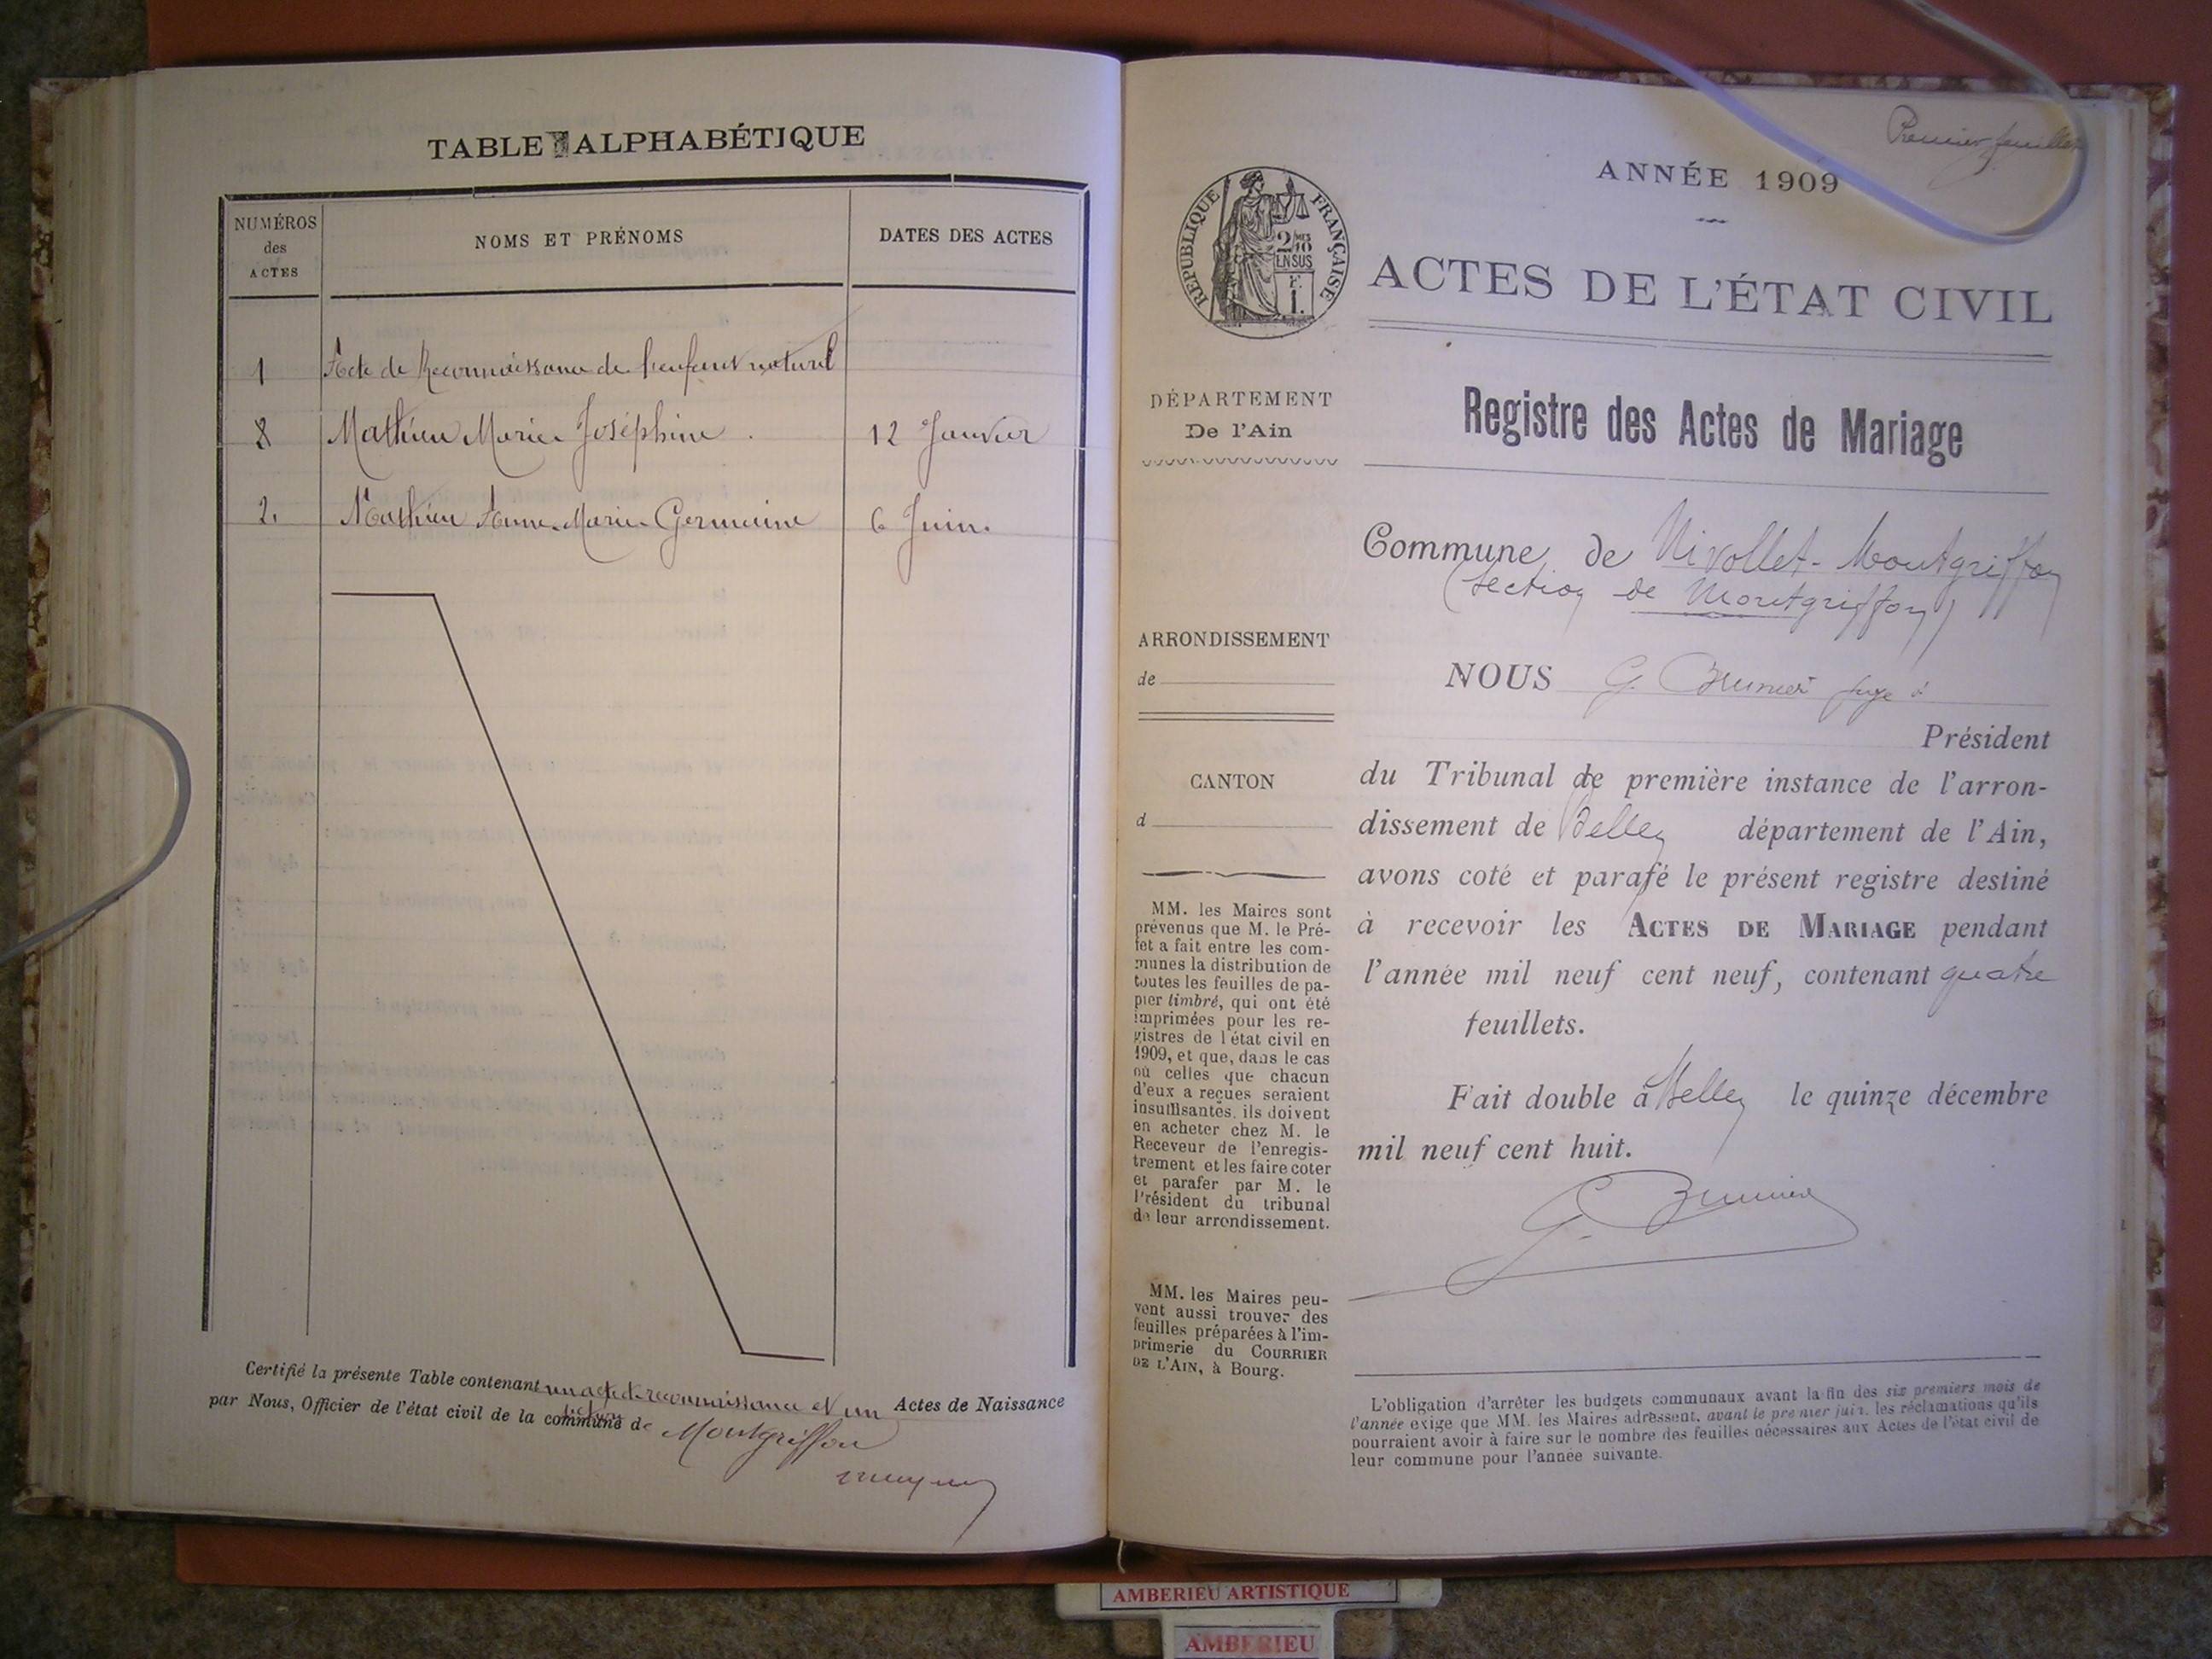 TABLE ALPHABÉTIQUE
NUMÉROS
des
ACTES
NOMS ET PRÉNOMS
DATES DES ACTES
1 Acte de Reconnaissance de l'enfant naturel
8 Mathieu Marie Joséphine . 12 Janvier
2. Mathieu Anne-Marie-Germaine 6 Juin.
Certifié la présente Table contenant un acte de reconnaissance et un Actes de Naissance
par Nous, Officier de l'état civil de la commune de Montgriffon
Premier feuillet
ANNÉE 1909
RÉPUBLIQUE FRANÇAISE
2/10
EN SUS
1.
ACTES DE L'ÉTAT CIVIL
DÉPARTEMENT
De l'Ain
ARRONDISSEMENT
de
CANTON
d
MM. les Maires sont
prévenus que M. le Pré-
fet a fait entre les com-
munes la distribution de
toutes les feuilles de pa-
pier timbré, qui ont été
imprimées pour les re-
gistres de l'état civil en
1909, et que, dans le cas
où celles que chacun
d'eux a reçues seraient
insuffisantes, ils doivent
en acheter chez M. le
Receveur de l'enregis-
trement et les faire coter
et parafer par M. le
Président du tribunal
de leur arrondissement.
MM. les Maires peu-
vent aussi trouver des
feuilles préparées à l'im-
primerie du COURRIER
DE L'AIN, à Bourg.
Registre des Actes de Mariage
Commune de Nivollet-Montgriffon
(section de Montgriffon)
NOUS G. Brunier juge
Président
du Tribunal de première instance de l'arron-
dissement de Belley département de l'Ain,
avons coté et parafé le présent registre destiné
à recevoir les ACTES DE MARIAGE pendant
l'année mil neuf cent neuf, contenant quatre
feuillets.
Fait double à Belley le quinze décembre
mil neuf cent huit.
G. Brunier
L'obligation d'arrêter les budgets communaux avant la fin des six premiers mois de
l'année exige que MM. les Maires adressent, avant le premier juin, les réclamations qu'ils
pourraient avoir à faire sur le nombre des feuilles nécessaires aux Actes de l'état civil de
leur commune pour l'année suivante.
AMBERIEU ARTISTIQUE
AMBERIEU